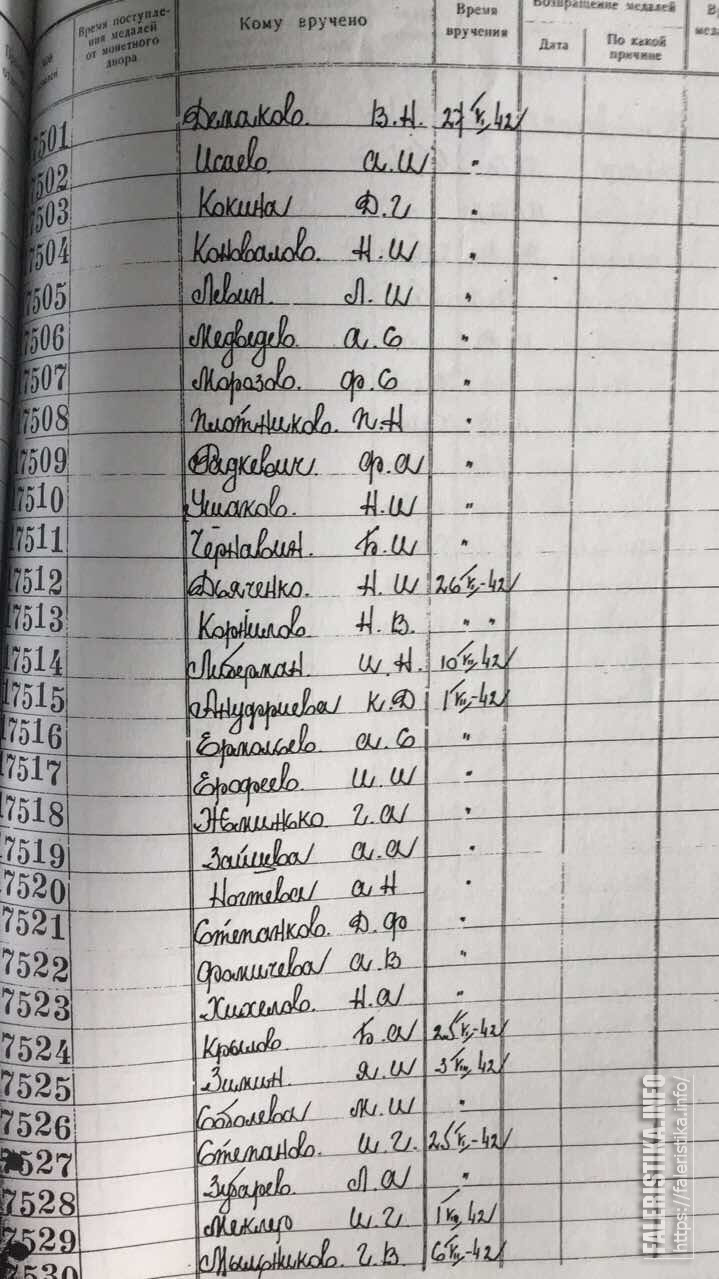 Время поступле-
ния медалей
от монетного
двора
Кому вручено
Время
вручения
Возвращение медалей
Дата
По какой
причине
7501 Демаков. В.Н. 27/VI-42
7502 Исаев А.И "
7503 Кокина Д.Г "
7504 Коновалов. Н.И "
7505 Левин. Л.И "
7506 Медведев. А.С "
7507 Морозов. Ф.С "
7508 Плотников. П.Н "
7509 Радкевич. Ф.А "
7510 Ушаков. Н.И "
17511 Чернавин. Б.И "
17512 Дьяченко. Н.И 26/VI-42
17513 Корнилов Н.В. " "
17514 Либерман. И.Н. 10/VII 42
17515 Ануфриева К.Д 1/VII-42
17516 Ермольев А.С "
17517 Ерофеев И.И "
17518 Жминько Г.А "
17519 Зайцева А.А "
17520 Ногтева А Н "
7521 Степанков. Д.Ф "
7522 Фомичева А.В "
7523 Н.А "
7524 Крылов Б.А 25/VI-42
7525 Зимин Я.И 3/VII 42
7526 Соболева М.И "
7527 Степанов. И.Г. 25/VI-42
7528 Зубарев. Л.А "
7529 Меклер И.Г 1/VII 42
7530 Мыльников. Г.В. 6/VII-42
FALERISTIKA.INFO
https://faleristika.info/